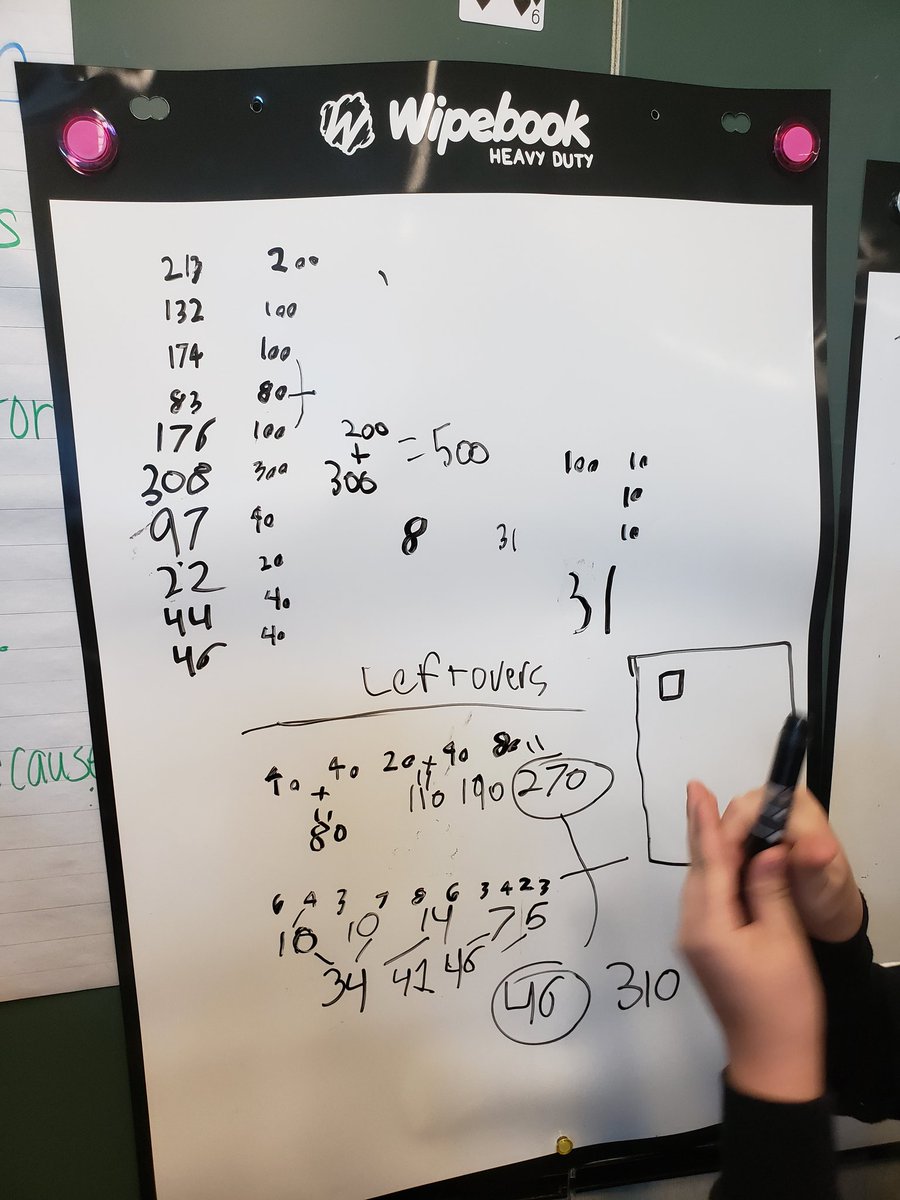 6
Wipebook
HEAVY DUTY
s
or
cause
213 200
132 100
174 100
83 80
176 100
308 300
200
+
300
= 500
97 90
22 20
44 40
46 40
8 31
100 10
10
10
31
Leftovers
40 + 40 20 + 90 80 =
=
80
=
110 190 270
6 4 3 7 8 6 3 4 2 3
10 10 14 7 5
34 41 46
46 310